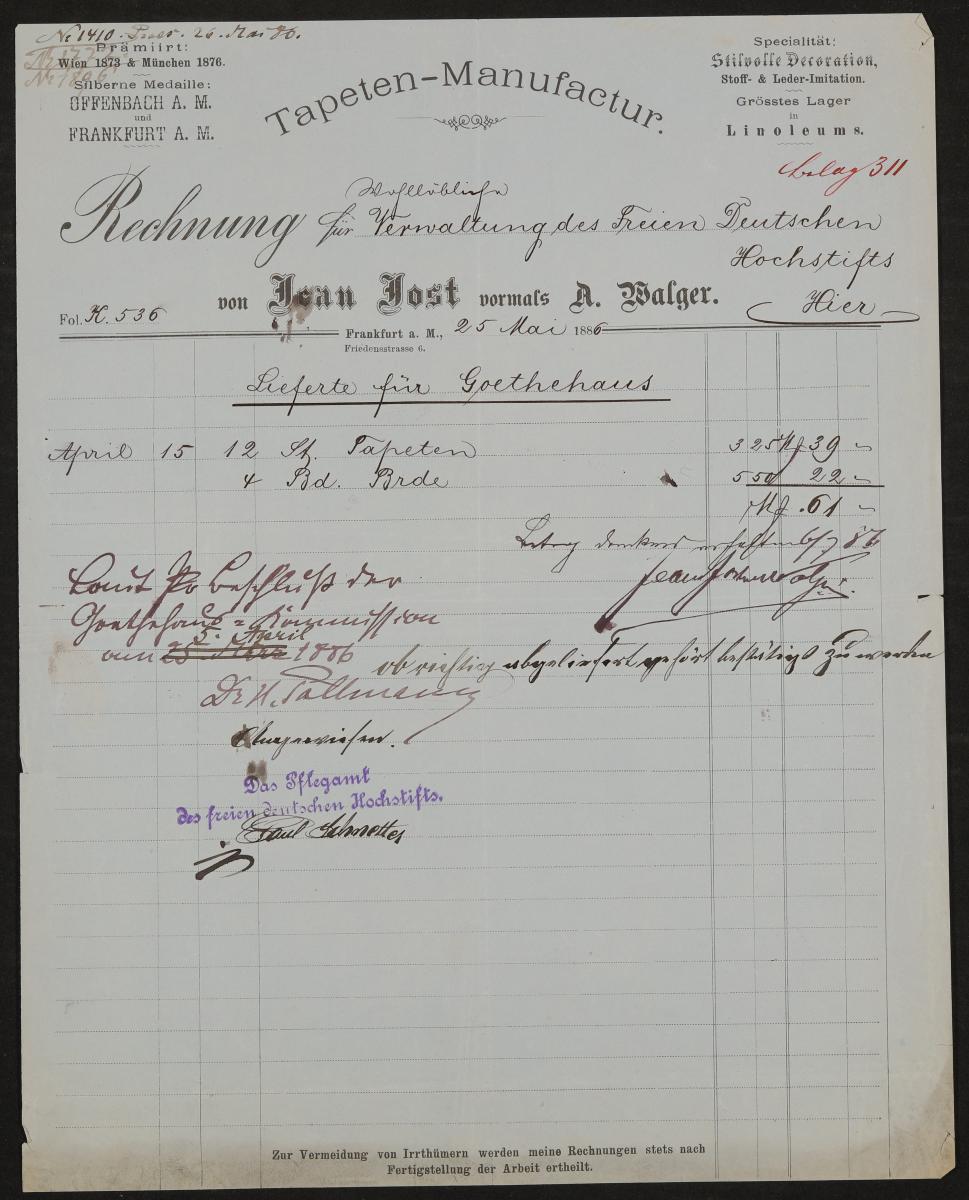 No 1410. Praes. 26. Mai 86.
Prämiirt:
Wien 1873 & München 1876.
Silberne Medaille:
OFFENBACH A. M.
und
FRANKFURT A. M.
Tapeten-Manufactur.
Specialität:
Stilvolle Decoration,
Stoff- & Leder-Imitation.
Grösstes Lager
in
Linoleums.
belag 311
Wohllöbliche
Rechnung für Verwaltung des Freien Deutschen
Hochstifts
Hier
von Jean Jost vormals A. Walger.
Fol. K. 536
Frankfurt a. M., 25 Mai 1886
Friedensstrasse 6.
Lieferte für Goethehaus
April 15 12 St. Tapeten 3 25 M 39 -
4 Bd. Brde 5 50 22 -
M . 61 -
Betrag dankend erhalten 6/7 86
Laut Beschluß der
Goethehaus = Kommission
5. April
am 1886
ob richtig abgeliefert gehört bestätigt zu werden
Dr H. Pallmann
Angewiesen.
Das Pflegamt
des freien deutschen Hochstifts.
Paul
Zur Vermeidung von Irrthümern werden meine Rechnungen stets nach
Fertigstellung der Arbeit ertheilt.